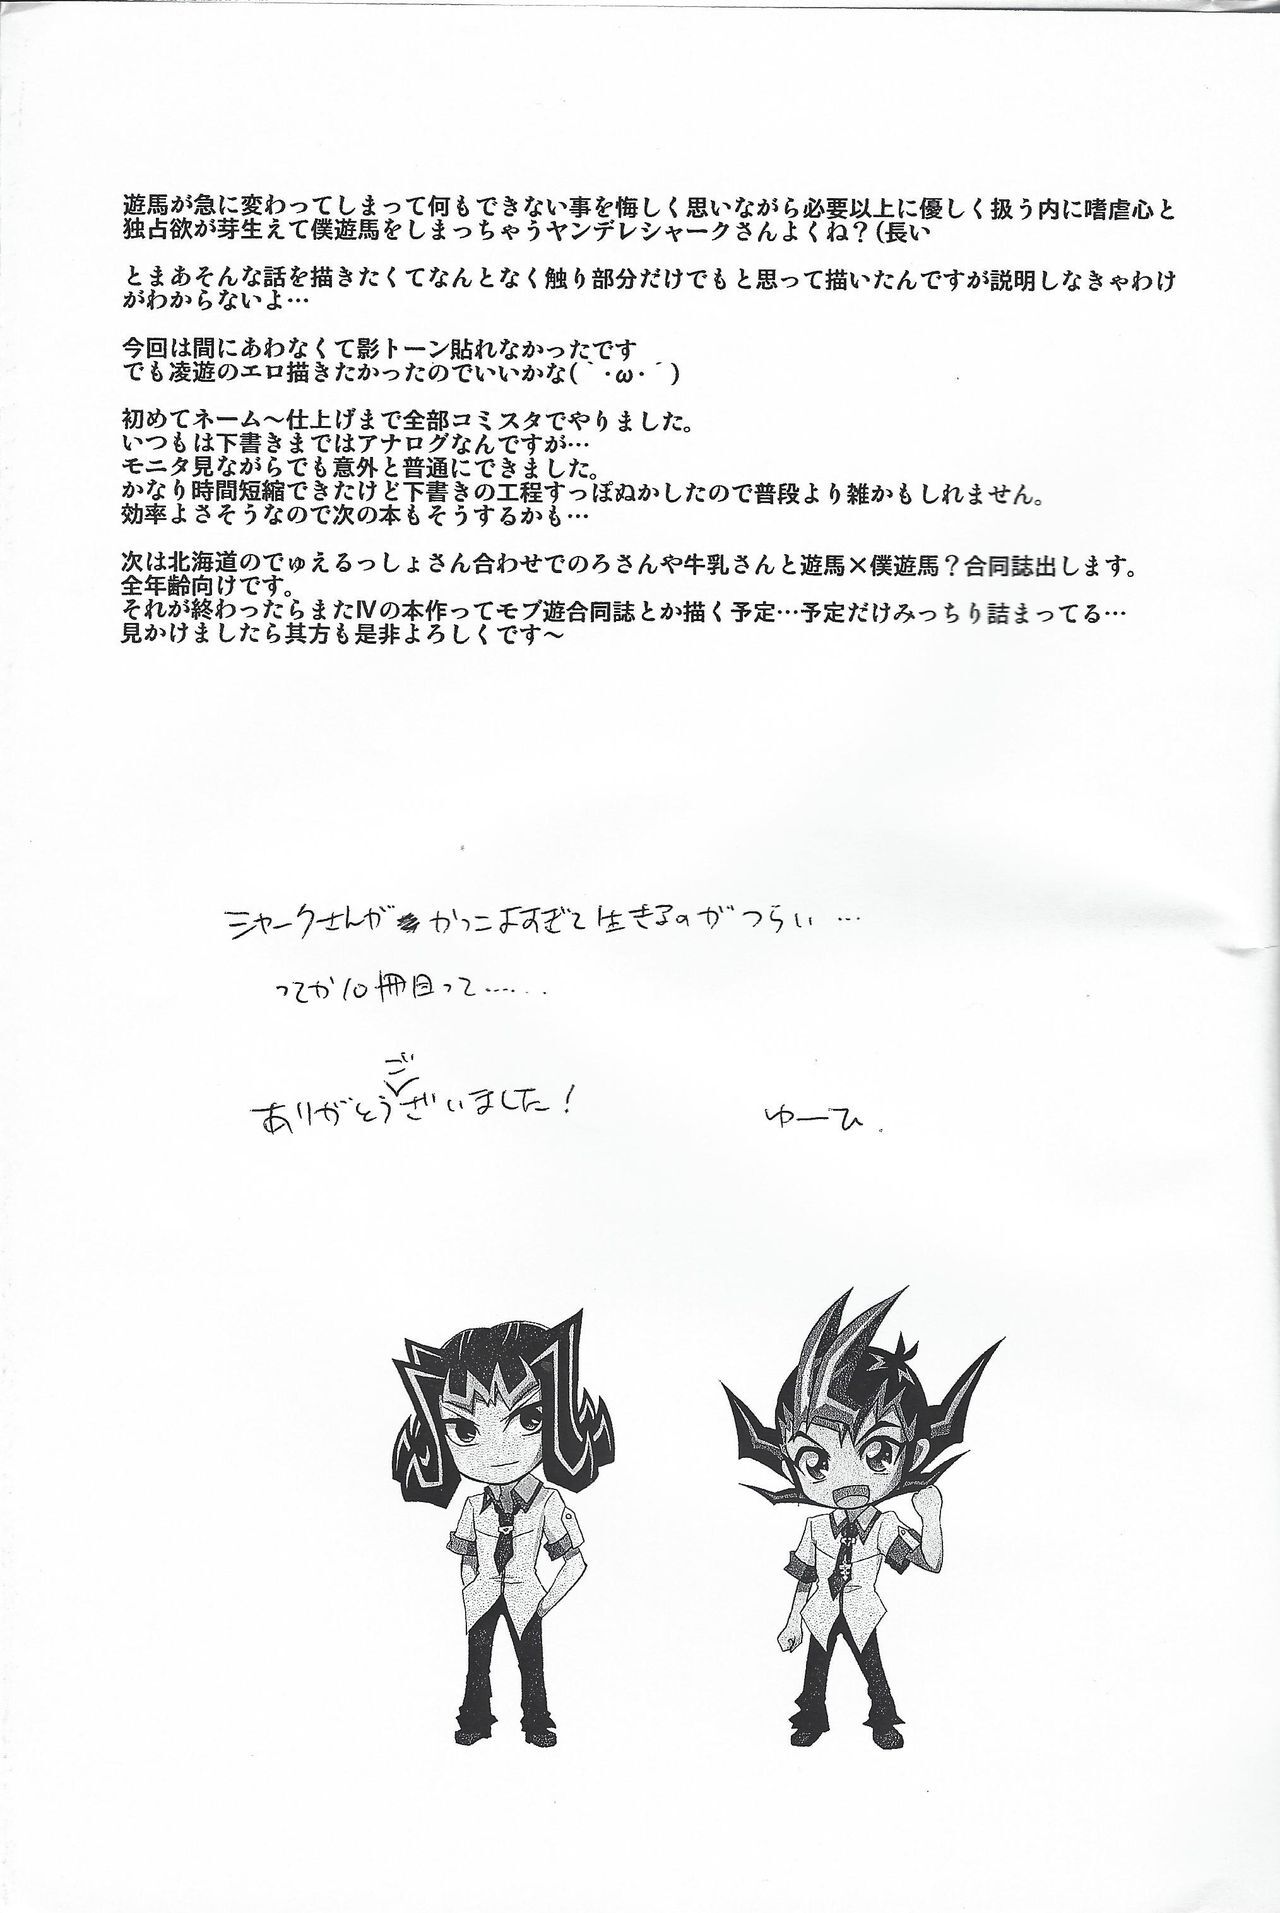 遊馬が急に変わってしまって何もできない事を悔しく思いながら必要以上に優しく扱う内に嗜虐心と
独占欲が芽生えて僕遊馬をしまっちゃうヤンデレシャークさんよくね？(長い
とまあそんな話を描きたくてなんとなく触り部分だけでもと思って描いたんですが説明しなきゃわけ
がわからないよ…
今回は間にあわなくて影トーン貼れなかったです
でも凌遊のエロ描きたかったのでいいかな(｀･ω･´)
初めてネーム～仕上げまで全部コミスタでやりました。
いつもは下書きまではアナログなんですが…
モニタ見ながらでも意外と普通にできました。
かなり時間短縮できたけど下書きの工程すっぽぬかしたので普段より雑かもしれません。
効率よさそうなので次の本もそうするかも…
次は北海道のでゅえるっしょさん合わせでのろさんや牛乳さんと遊馬×僕遊馬？合同誌出します。
全年齢向けです。
それが終わったらまたⅣの本作ってモブ遊合同誌とか描く予定…予定だけみっちり詰まってる…
見かけましたら其方も是非よろしくです～
シャークさんがかっこよすぎて生きるのがつらい…
ってか10冊目って……
ありがとうございました！
ゆーひ.